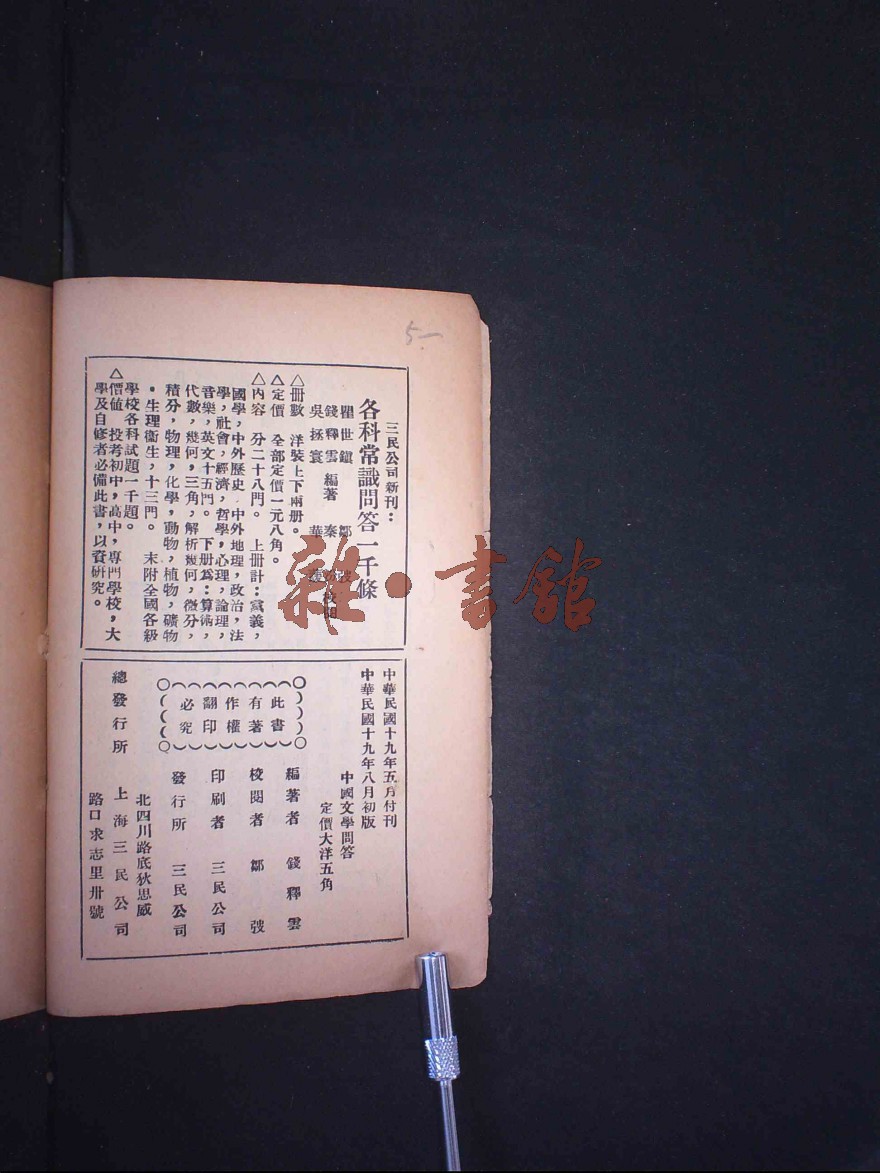 5一
三民公司新刊：
各科常識問答一千條
瞿世鎮 鄒
錢釋雲 編著 秦
吳拯寰 華
校閱
△冊數 洋裝上下兩册。
△定價 全部定價一元八角。
△內容 分二十八門。 上册計：黨義，
國學，中外歷史，中外地理，政治，法
學，社會，經濟，哲學，心理，論理，
音樂，英文十五門。 下册爲：算術，
代數，幾何，三角，解析幾何，微分，
積分，物理，化學，動物，植物，礦物
，生理衞生，十三門。 末附全國各級
學校各科試題一千題。
△價值 投考初中，高中，專門學校，大
學及自修者必備此書，以資研究。
雜·書館
中華民國十九年五月付刊
中華民國十九年八月初版
中國文學問答
定價大洋五角
編著者 錢釋雲
校閱者 鄒弢
印刷者 三民公司
發行所 三民公司
此書
有著
作權
翻印
必究
北四川路底狄思威
總發行所 上海三民公司
路口求志里卅號